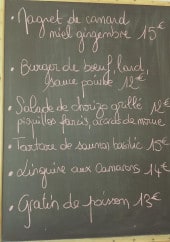 • Magret de canard
miel gingembre 15€
• Burger de bœuf, lard,
sauce poivre 12€
• Salade de chorizo grillé 12€
piquillos farcis, acras de morue
• Tartare de saumon basilic 15€
• Linguine aux Camarons 14€
• Gratin de poisson 13€